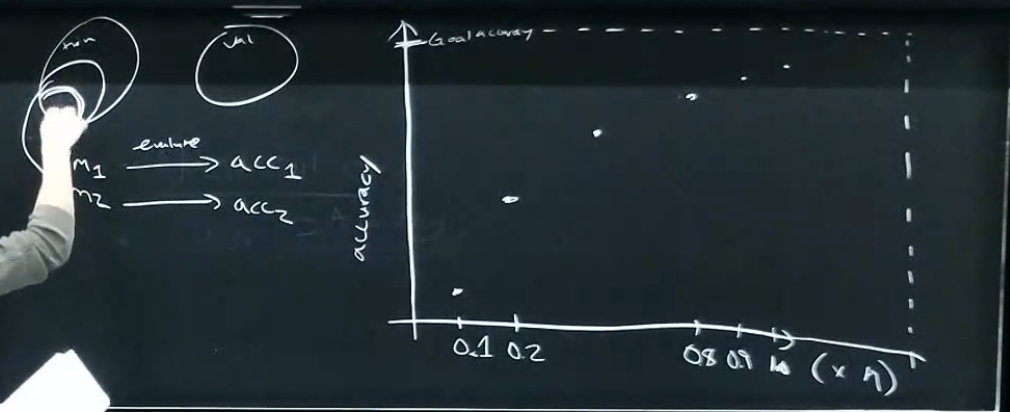 train
val
evaluate
m1 → acc1
m2 → acc2
Goal accuracy
accuracy
0.1 0.2 0.8 0.9 1.0 (x n)